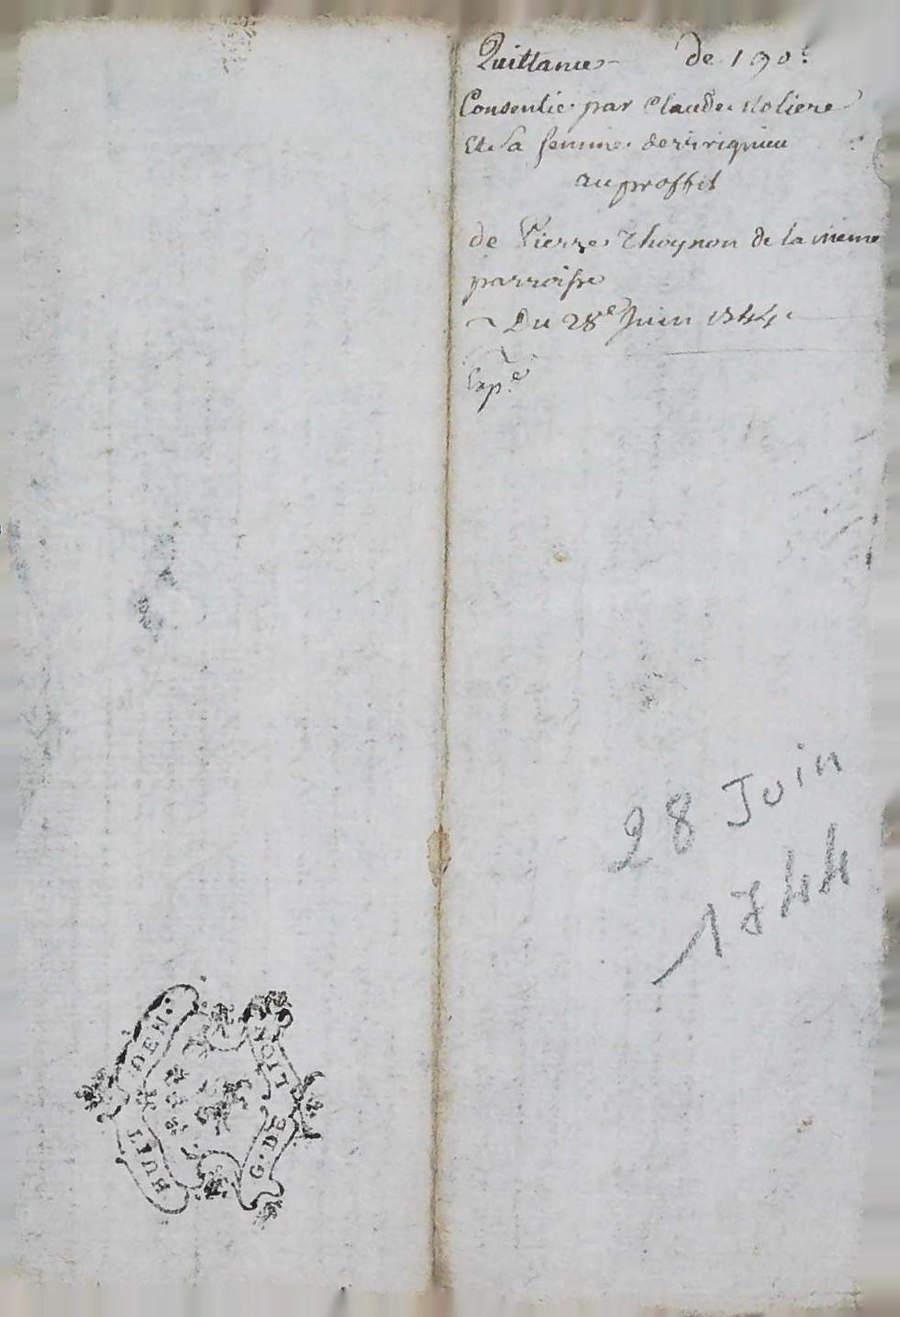 Quittance de 190ᵗ
Consentie par Claude Moliere
Et Sa femme de
au proffit
de Pierre Thoynon de la meme
parroisse
Du 28ᵉ Juin 1744
Expᵉ
28 Juin
1744
HUIT DEN.
G. DE LION